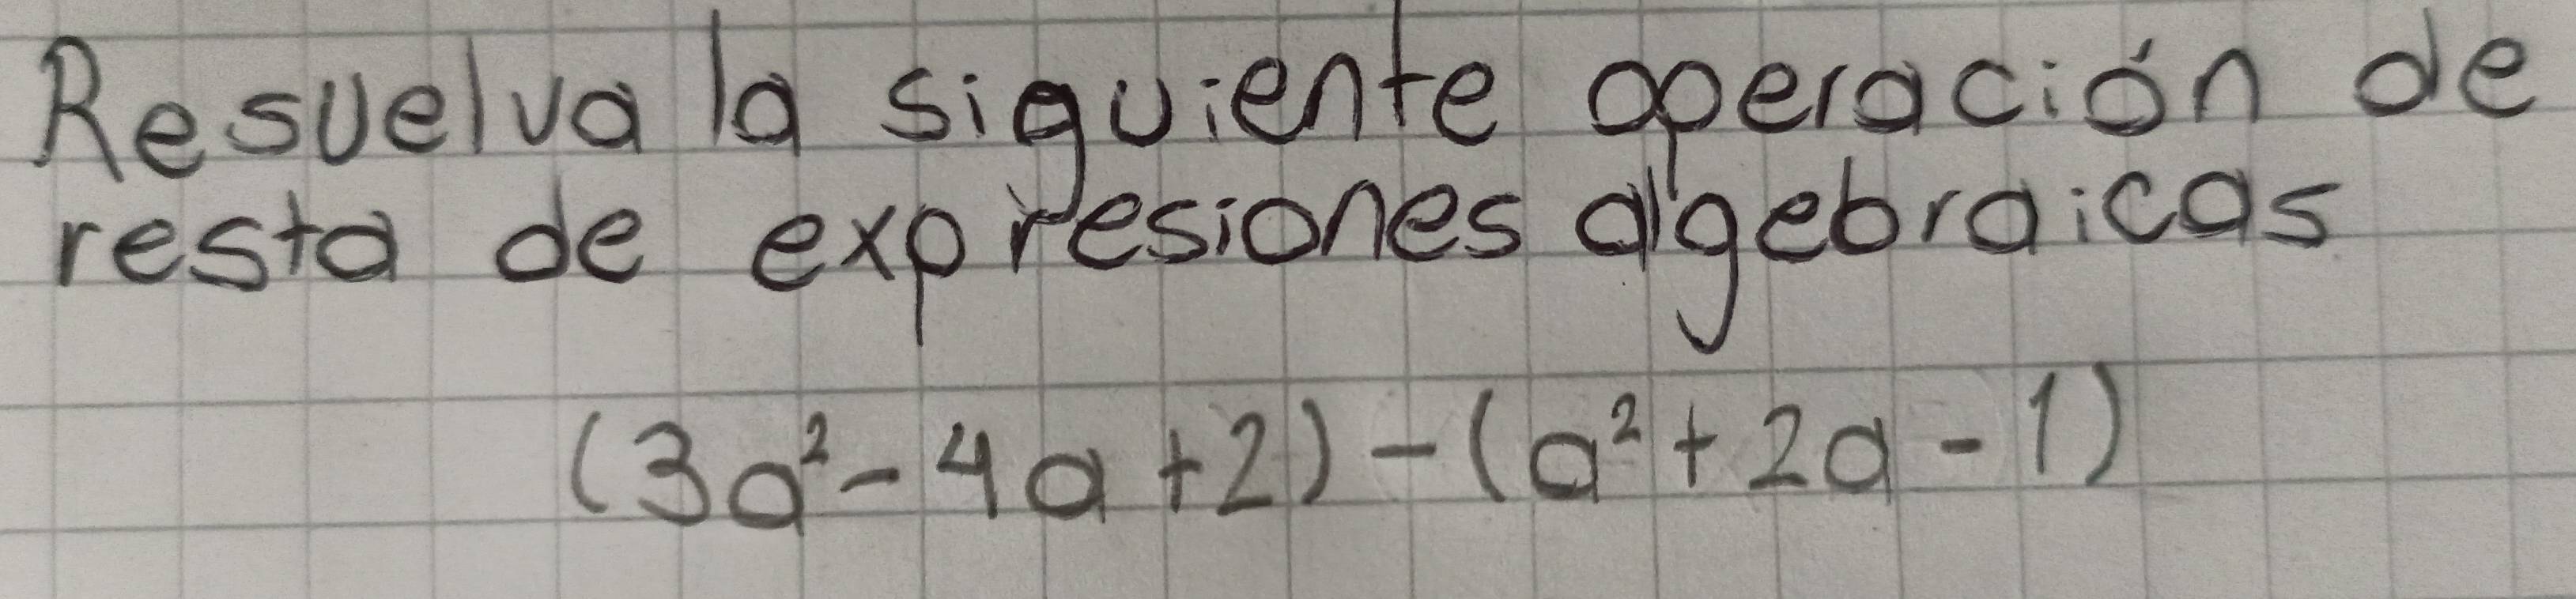 Resuelva la siguiente operación de
resta de expresiones algebraicas
(3a² - 4a + 2) - (a² + 2a - 1)